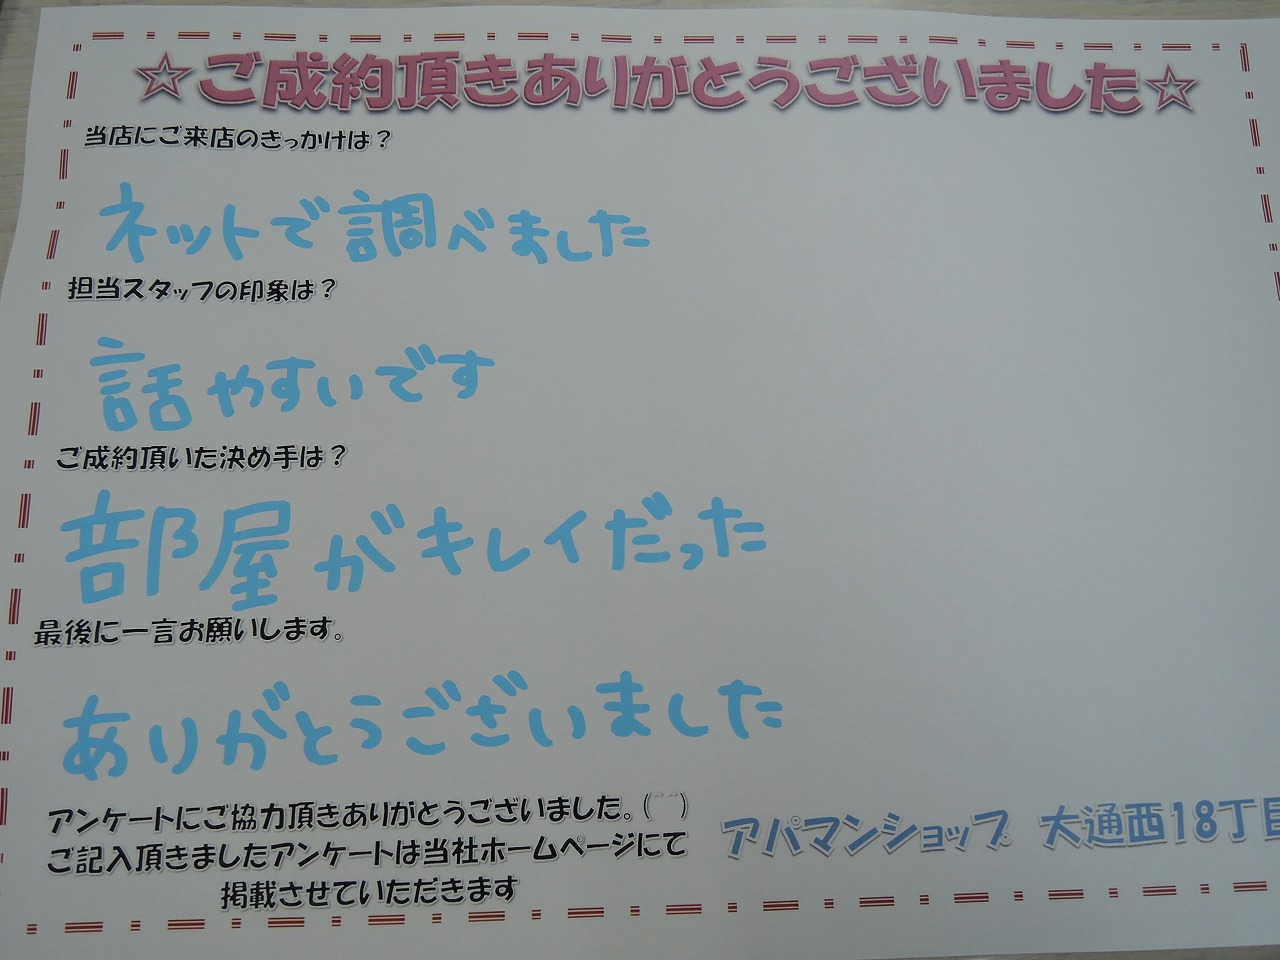 ☆ご成約頂きありがとうございました☆
当店にご来店のきっかけは？
ネットで調べました
担当スタッフの印象は？
話やすいです
ご成約頂いた決め手は？
部屋がキレイだった
最後に一言お願いします。
ありがとうございました
アンケートにご協力頂きありがとうございました。(^^)
ご記入頂きましたアンケートは当社ホームページにて
掲載させていただきます
アパマンショップ 大通西18丁目